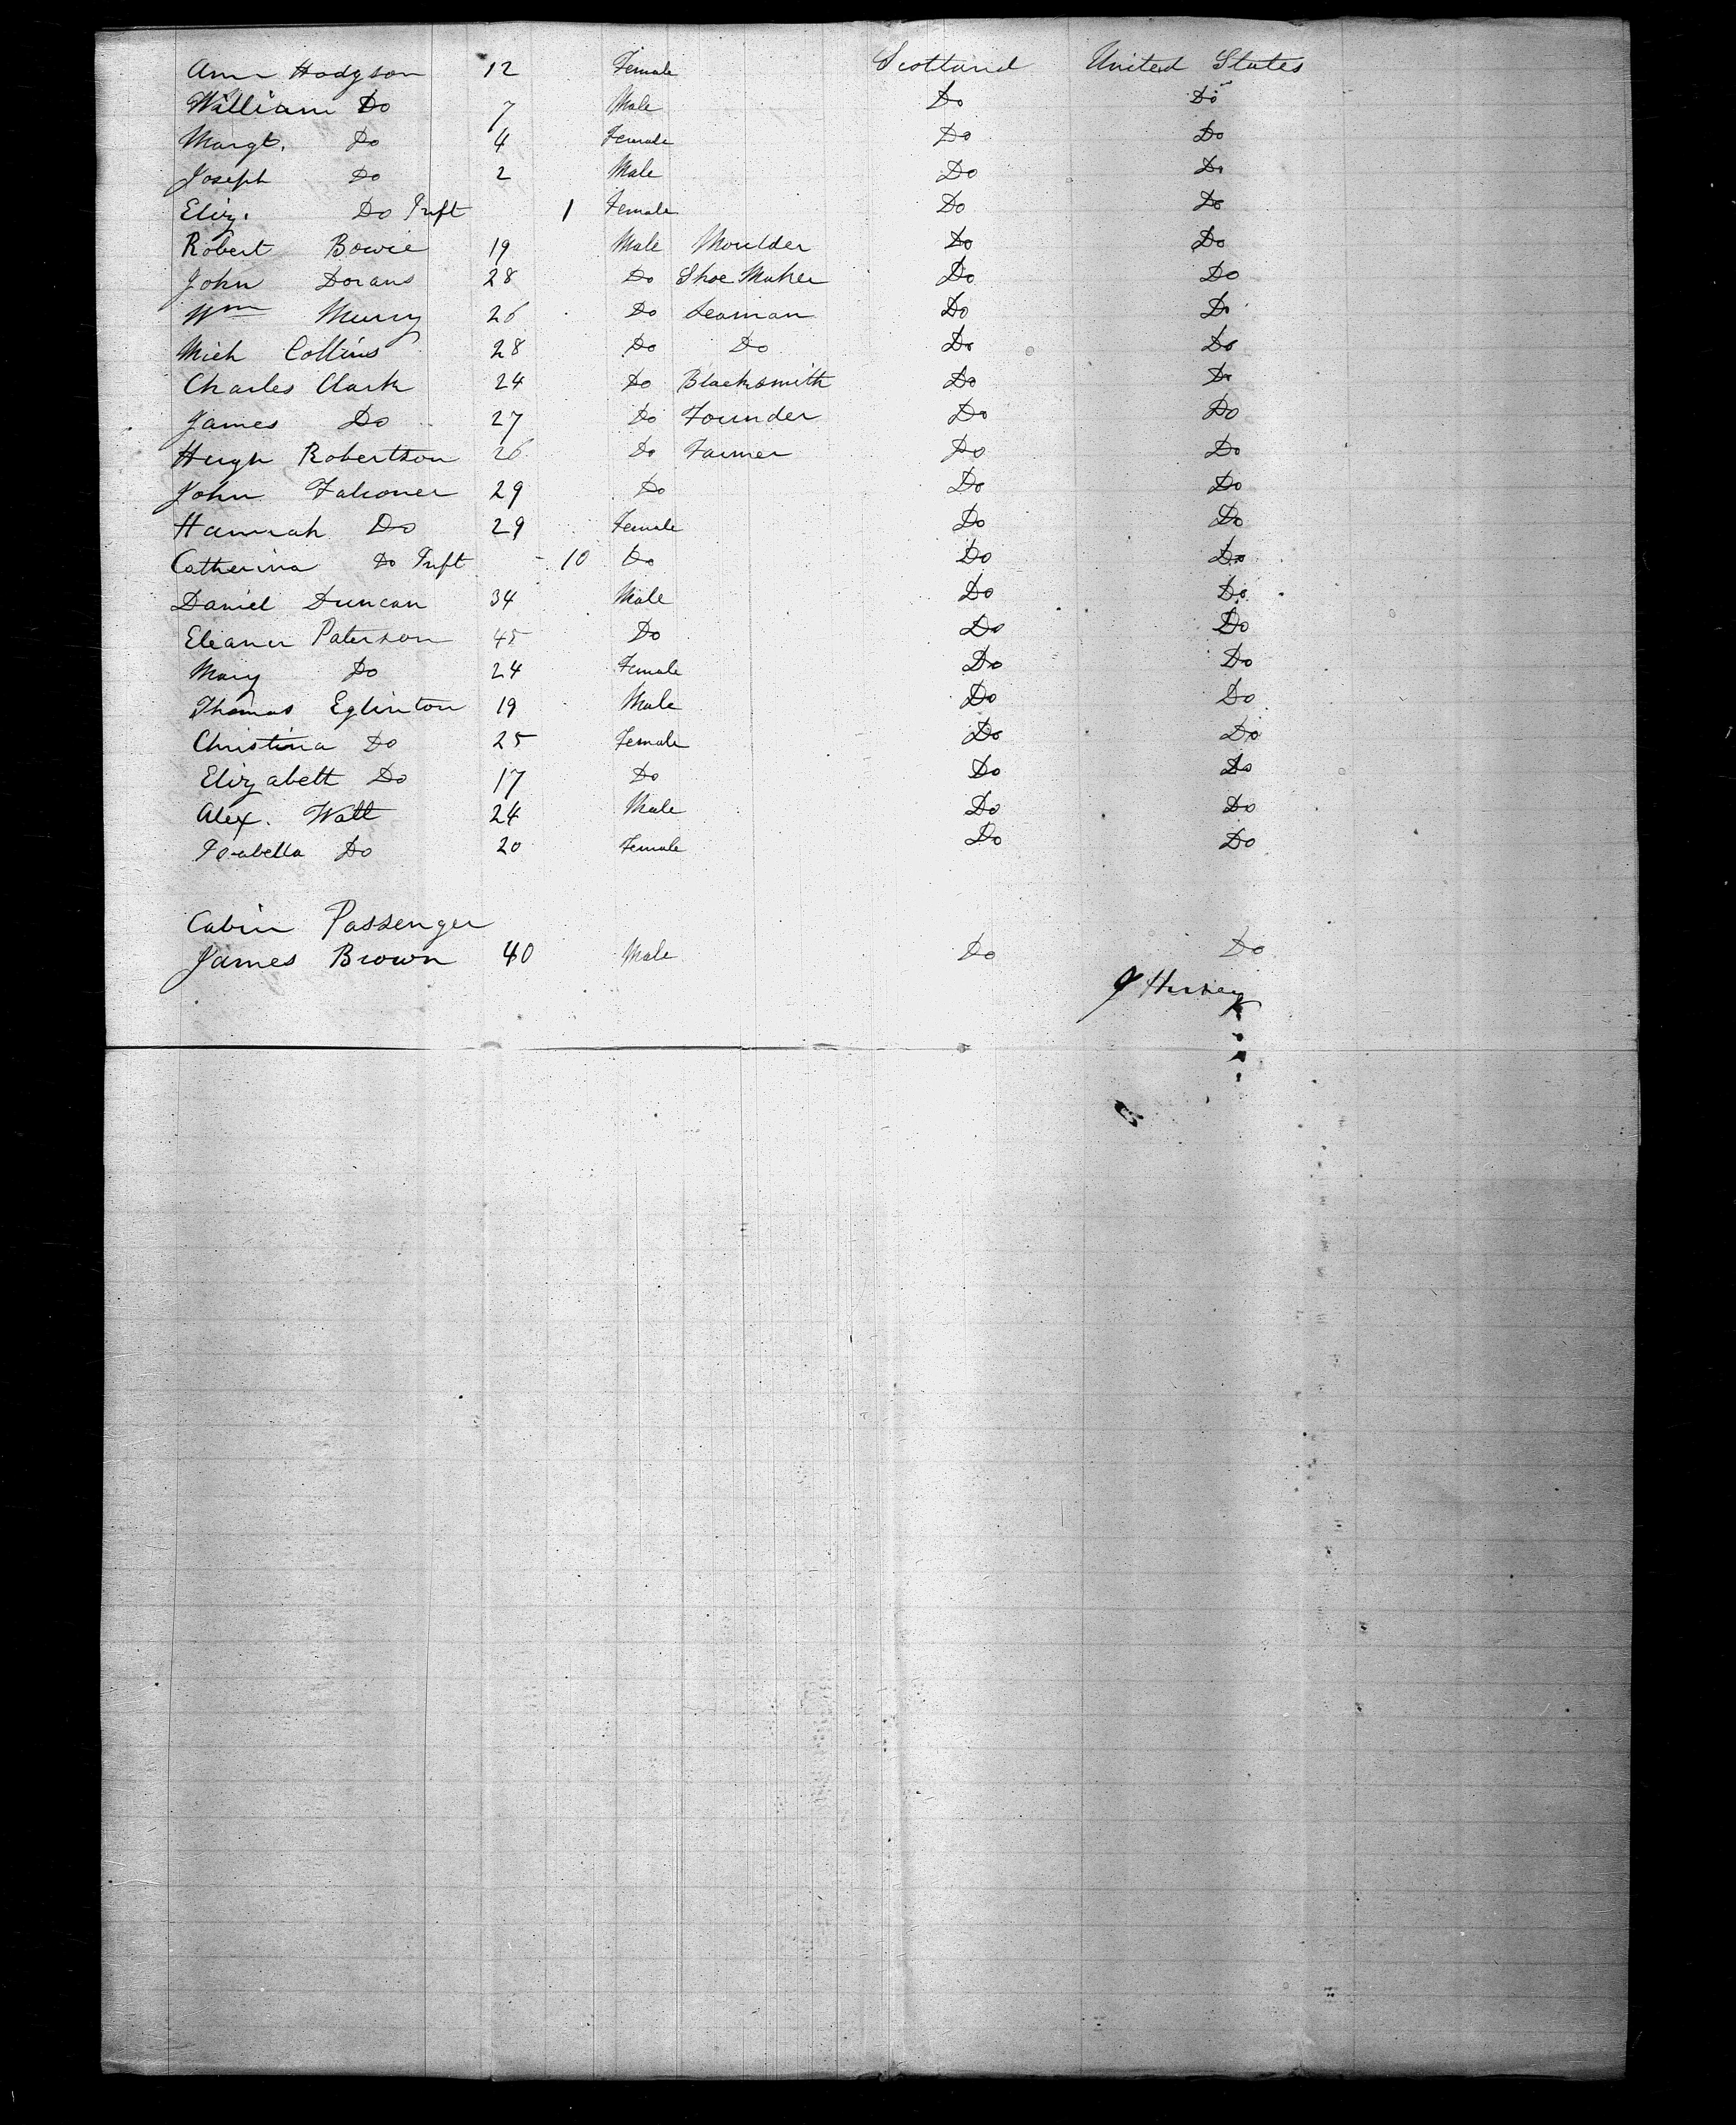 Ann Hodgson 12 Female Scotland United States
William Do 7 Male Do Do
Margt. Do 4 Female Do Do
Joseph Do 2 Male Do Do
Eliz. Do Inft 1 Female Do Do
Robert Bowie 19 Male Moulder Do Do
John Dorans 28 Do Shoe Maker Do Do
Wm Murry 26 Do Seaman Do Do
Mich Collins 28 Do Do Do Do
Charles Clark 24 Do Blacksmith Do Do
James Do 27 Do Founder Do Do
Hugh Robertson 26 Do Farmer Do Do
John Falconer 29 Do Do Do
Hannah Do 29 Female Do Do
Catherina Do Inft - 10 Do Do Do
Daniel Duncan 34 Male Do Do
Eleanor Paterson 45 Do Do Do
Mary Do 24 Female Do Do
Thomas Eglinton 19 Male Do Do
Christina Do 25 Female Do Do
Elizabett Do 17 Do Do Do
Alex. Watt 24 Male Do Do
Isabella Do 20 Female Do Do
Cabin Passenger
James Brown 40 Male Do Do